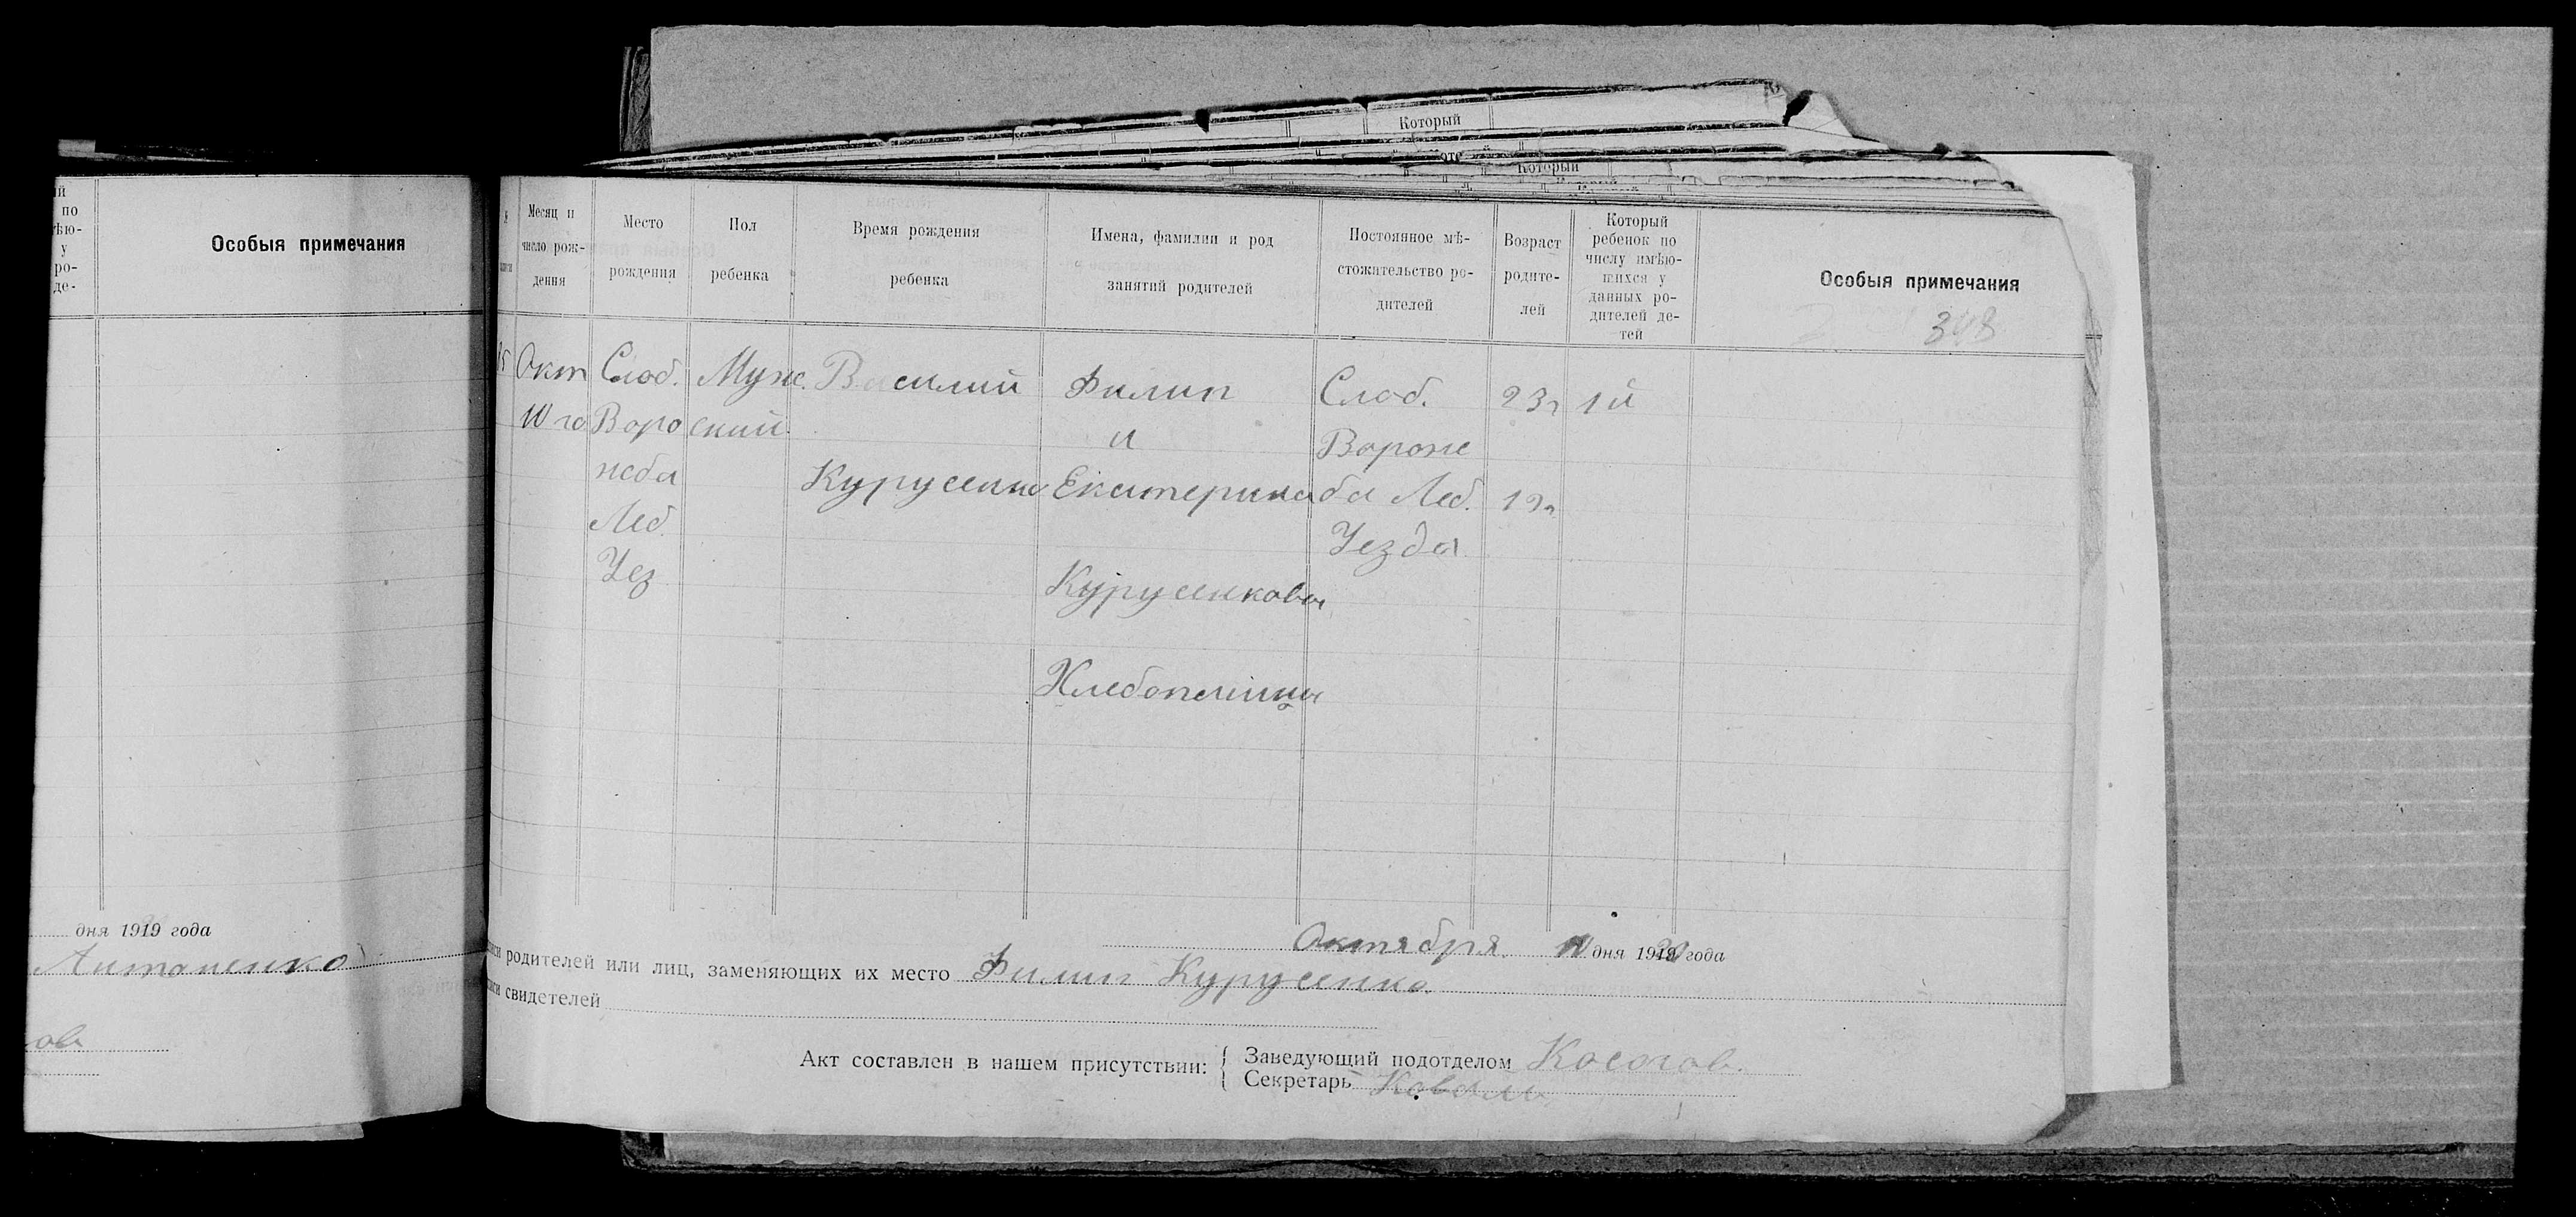 Который
Который
по
ѣю-
у
ро-
де-
Особыя примечания
дня 1919 года
Антоненко
Месяц и
число рож-
дения
Место
рождения
Пол
ребенка
Время рождения
ребенка
Имена, фамилии и род
занятий родителей
Постоянное мѣ-
стожительство ро-
дителей
Возраст
родите-
лей
Который
ребенок по
числу имѣю-
щихся у
данных ро-
дителей де-
тей
Особыя примечания
348
Окт
10 го
Слоб.
Воро
жба
Леб.
Уез
Муж.
ский
Василий
Курусенко
Филип
и
Екатерина
Курусенкова
Хлебопашцы
Слоб.
Вороже
ба Леб.
Уезда
23 г
19 г
1й
Октября 10 дня 1920 года
родителей или лиц, заменяющих их место Филип Курусенко.
свидетелей
Акт составлен в нашем присутствии:
Заведующий подотделом Косогов.
Секретарь